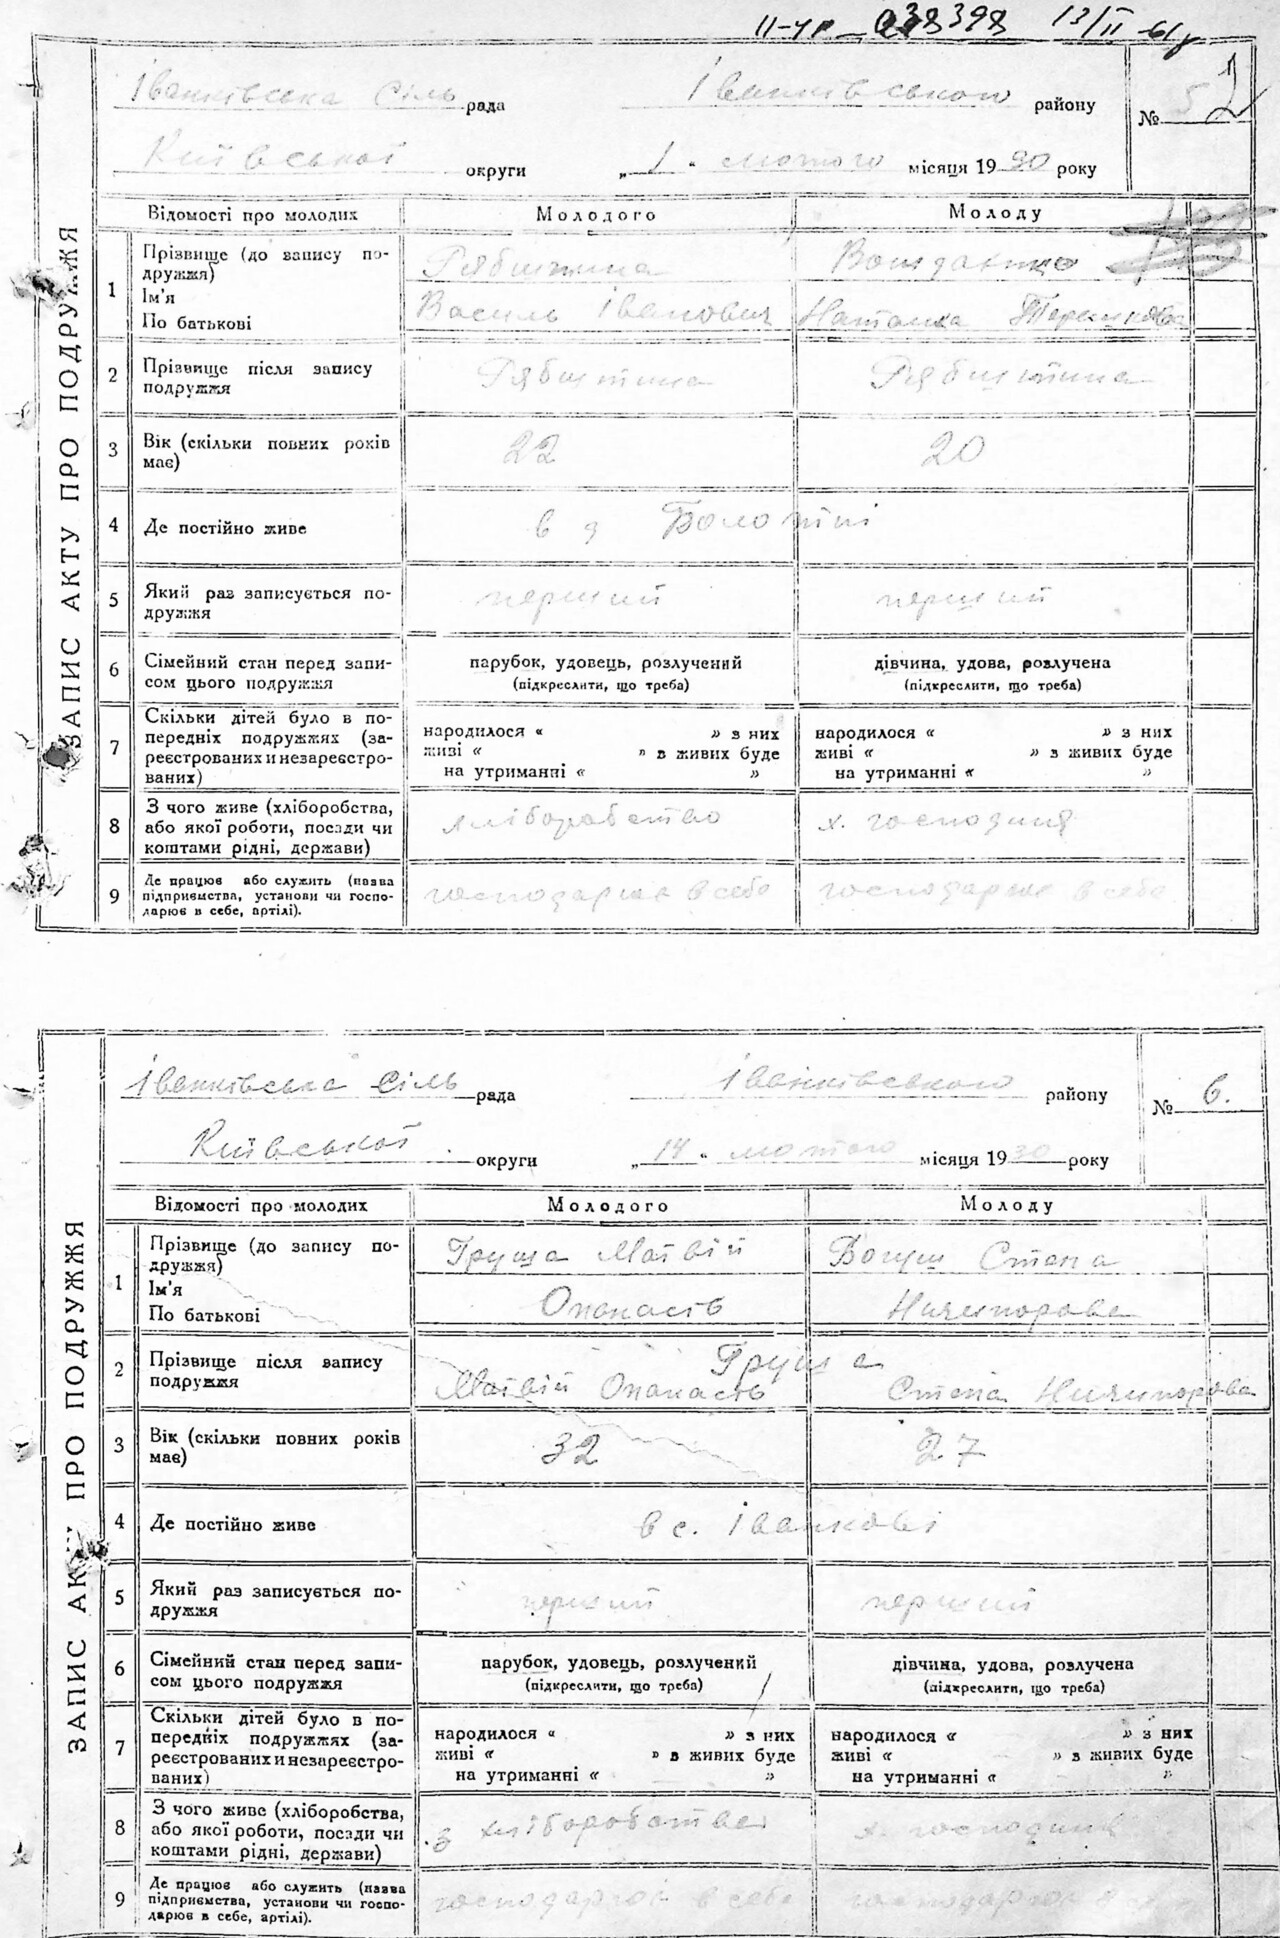 II-УР - 038398 13/II-61р
Іванківська сіль рада Іванківського району № 5
Київської округи „1" лютого місяця 1930 року
ЗАПИС АКТУ ПРО ПОДРУЖЖЯ
Відомості про молодих Молодого Молоду
1 Прізвище (до запису по-
дружжя)
Ім'я
По батькові
Василь Іванович Наталка
2 Прізвище після запису
подружжя
3 Вік (скільки повних років
має)
22 20
4 Де постійно живе
5 Який раз записується по-
дружжя
перший перший
6 Сімейний стан перед запи-
сом цього подружжя
парубок, удовець, розлучений
(підкреслити, що треба)
дівчина, удова, розлучена
(підкреслити, що треба)
7 Скільки дітей було в по-
передніх подружжях (за-
реєстрованих и незареєстро-
ваних)
народилося « » з них
живі « » в живих буде
на утриманні « »
народилося « » з них
живі « » з живих буде
на утриманні « »
8 З чого живе (хліборобства,
або якої роботи, посади чи
коштами рідні, держави)
хліборобство х. господиня
9 Де працює або служить (назва
підприємства, установи чи госпо-
дарює в себе, артілі).
господарює в себе господарює в себе
Іванківська сіль рада Іванківського району № 6.
Київської округи „14" лютого місяця 1930 року
ЗАПИС АКТУ ПРО ПОДРУЖЖЯ
Відомості про молодих Молодого Молоду
1 Прізвище (до запису по-
дружжя)
Ім'я
По батькові
Груша Матвій Степа
Опанасів Ничипорова
2 Прізвище після запису
подружжя
Груша
Матвій Опанасів Степа Ничипорова
3 Вік (скільки повних років
має)
32 27
4 Де постійно живе
в с. Іванкові
5 Який раз записується по-
дружжя
перший перший
6 Сімейний стан перед запи-
сом цього подружжя
парубок, удовець, розлучений
(підкреслити, що треба)
дівчина, удова, розлучена
(підкреслити, що треба)
7 Скільки дітей було в по-
передніх подружжях (за-
реєстрованих и незареєстро-
ваних)
народилося « » з них
живі « » в живих буде
на утриманні « »
народилося « » з них
живі « » в живих буде
на утриманні « »
8 З чого живе (хліборобства,
або якої роботи, посади чи
коштами рідні, держави)
з хліборобства х. господиня
9 Де працює або служить (назва
підприємства, установи чи госпо-
дарює в себе, артілі).
господарює в себе господарює в